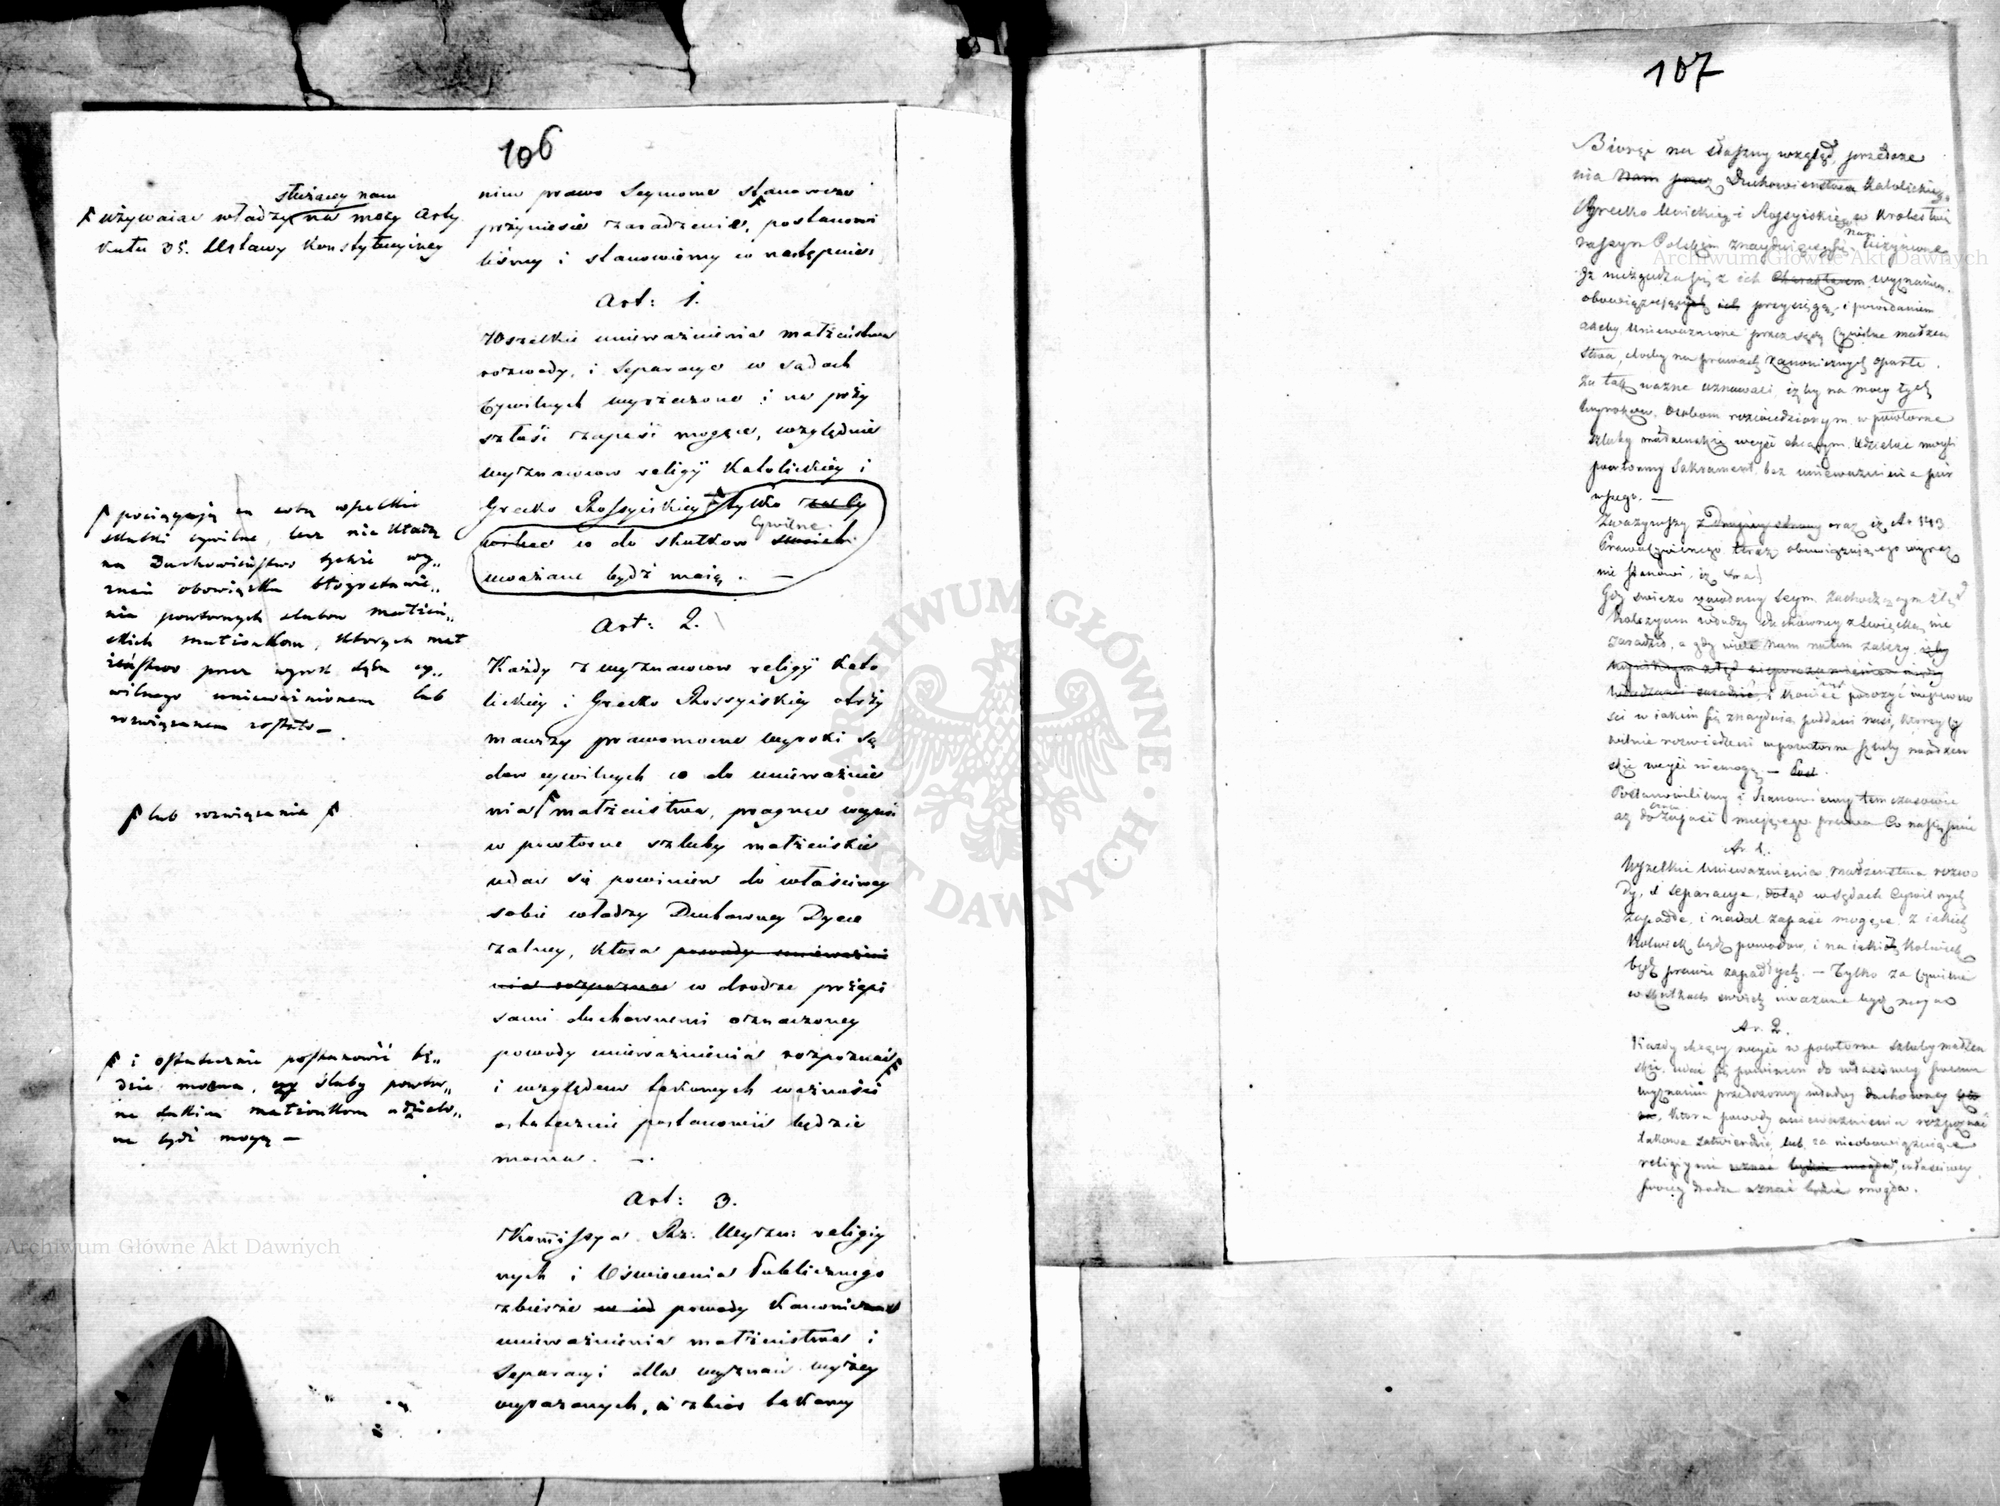 106
służący nam
używaiąc władzy na mocy Arty
kułu 35. Ustawy Konstytucyiney
nim prawo Seymowe stanowcze
przyniesie zaradzenie, postanowi
liśmy i stanowiemy co następuie:
Art: 1.
Wszelkie unieważnienia małżeństwa
rozwody, i Separacye w Sądach
Cywilnych wyrzeczone i na przy
szłość zapaść mogące, względnie
wyznawców religij Katolickiey i
Grecko Rossyiskiey tylko
Cywilne
co do skutków
uważane bydź maią. —
pociągają za sobą wszelkie
skutki cywilne, lecz nie kładą
na Duchowieństwo tychże wy„
znań obowiązku błogosławie„
nia powtornych slubow małżeń„
skich małżonkom, których mał
żeństwo przez wyrok sądu cy„
wilnego unieważnionem lub
rozwiązanem zostało —
Art: 2.
Każdy z wyznawców religij Kato
lickiey i Grecko Rossyiskiey otrzy
mawszy prawomocne wyroki Są
dów cywilnych co do unieważnie
nia małżeństwa, pragnąc wejść
lub rozwiązania
w powtorne szluby małżeńskie
udać się powinien do właściwey
sobie władzy Duchowney Dyece
zalney, która powody unieważnie
nia rozpoznać w drodze przepi
sami duchownemi oznaczoney
powody unieważnienia rozpoznać
i względem takowych ważności
ostatecznie postanowić będzie
mocna. —
i ostatecznie postanowić bę„
dzie mocna, czy śluby powtor„
ne takim małżonkom udzielo„
ne bydź mogą —
Art: 3.
Kommissya Rz: Wyzn: religiy
nych i Oświecenia Publicznego
zbierze powody Kanoniczne
unieważnienia małżeństwa i
Separacyi dla wyznań wyżey
wyrażonych, i zbiór takowy
107
Biorąc na słuszny wzgląd, przełoże
nia Nam przez Duchowieństwa Katolickiego
Grecko Unickiego i Rossyiskiego w Krolestwie
naszym Polskiem znayduiącego się
iż niezgadza się z ich charakterem wyznaniem
obowiązuiących ich przysięgą, i powołaniem
ażeby unieważnione przez sądy Cywilne małżeń
stwa, choćby na prawach kanonicznych oparte,
za tak ważne uznawali iżby na mocy tych
wyroków, Osobom rozwiedzionym w powtorne
szluby małżeńskie weyść chcącym, udzielać mogli
powtorny Sakrament bez unieważnienia pier
wszego. —
Zważywszy z Drugiey strony oraz iż Ar 143
Prawa Cywilnego teraz obowiązuiącego wyraź
nie stanowi, iż
Gdy swieżo zwołany Seym
władzy duchowney z świecką nie
zaradził, a gdy wiele Nam natem zależy
koniec położyć niepewno
ści w iakim się znayduią poddani nasi, którzy Cy
wilnie rozwiedzeni w powtorne szluby małżeń
skie weyść niemogą —
Postanowiliśmy i Stanowiemy tem czasowie
aż do zapaść mającego prawa Co następuie
Ar. 1.
Wszelkie Unieważnienia małżeństwa rozwo
dy, i Separacye, dotąd w Sądach Cywilnych
zapadłe, i nadal zapaść mogące, z iakich
kolwiek bądź powodów, i na iakich kolwiek
bądź prawie zapadłych. — Tylko za Cywilne
w skutkach swoich uważane bydź mogą
Ar. 2.
Każdy chcący weyść w powtorne szluby małżeń
skie, udać się powinien do właściwey swemu
wyznaniu przełożoney władzy duchowney
która powody unieważnienia rozpoznać
takowe zatwierdzić, lub za nieobowiązuiące
religiynie uznać będzie mogła, właściwey
swoiey drodze uznać będzie mogła.
Archiwum Główne Akt Dawnych
Archiwum Główne Akt Dawnych
ARCHIWUM GŁÓWNE AKT DAWNYCH